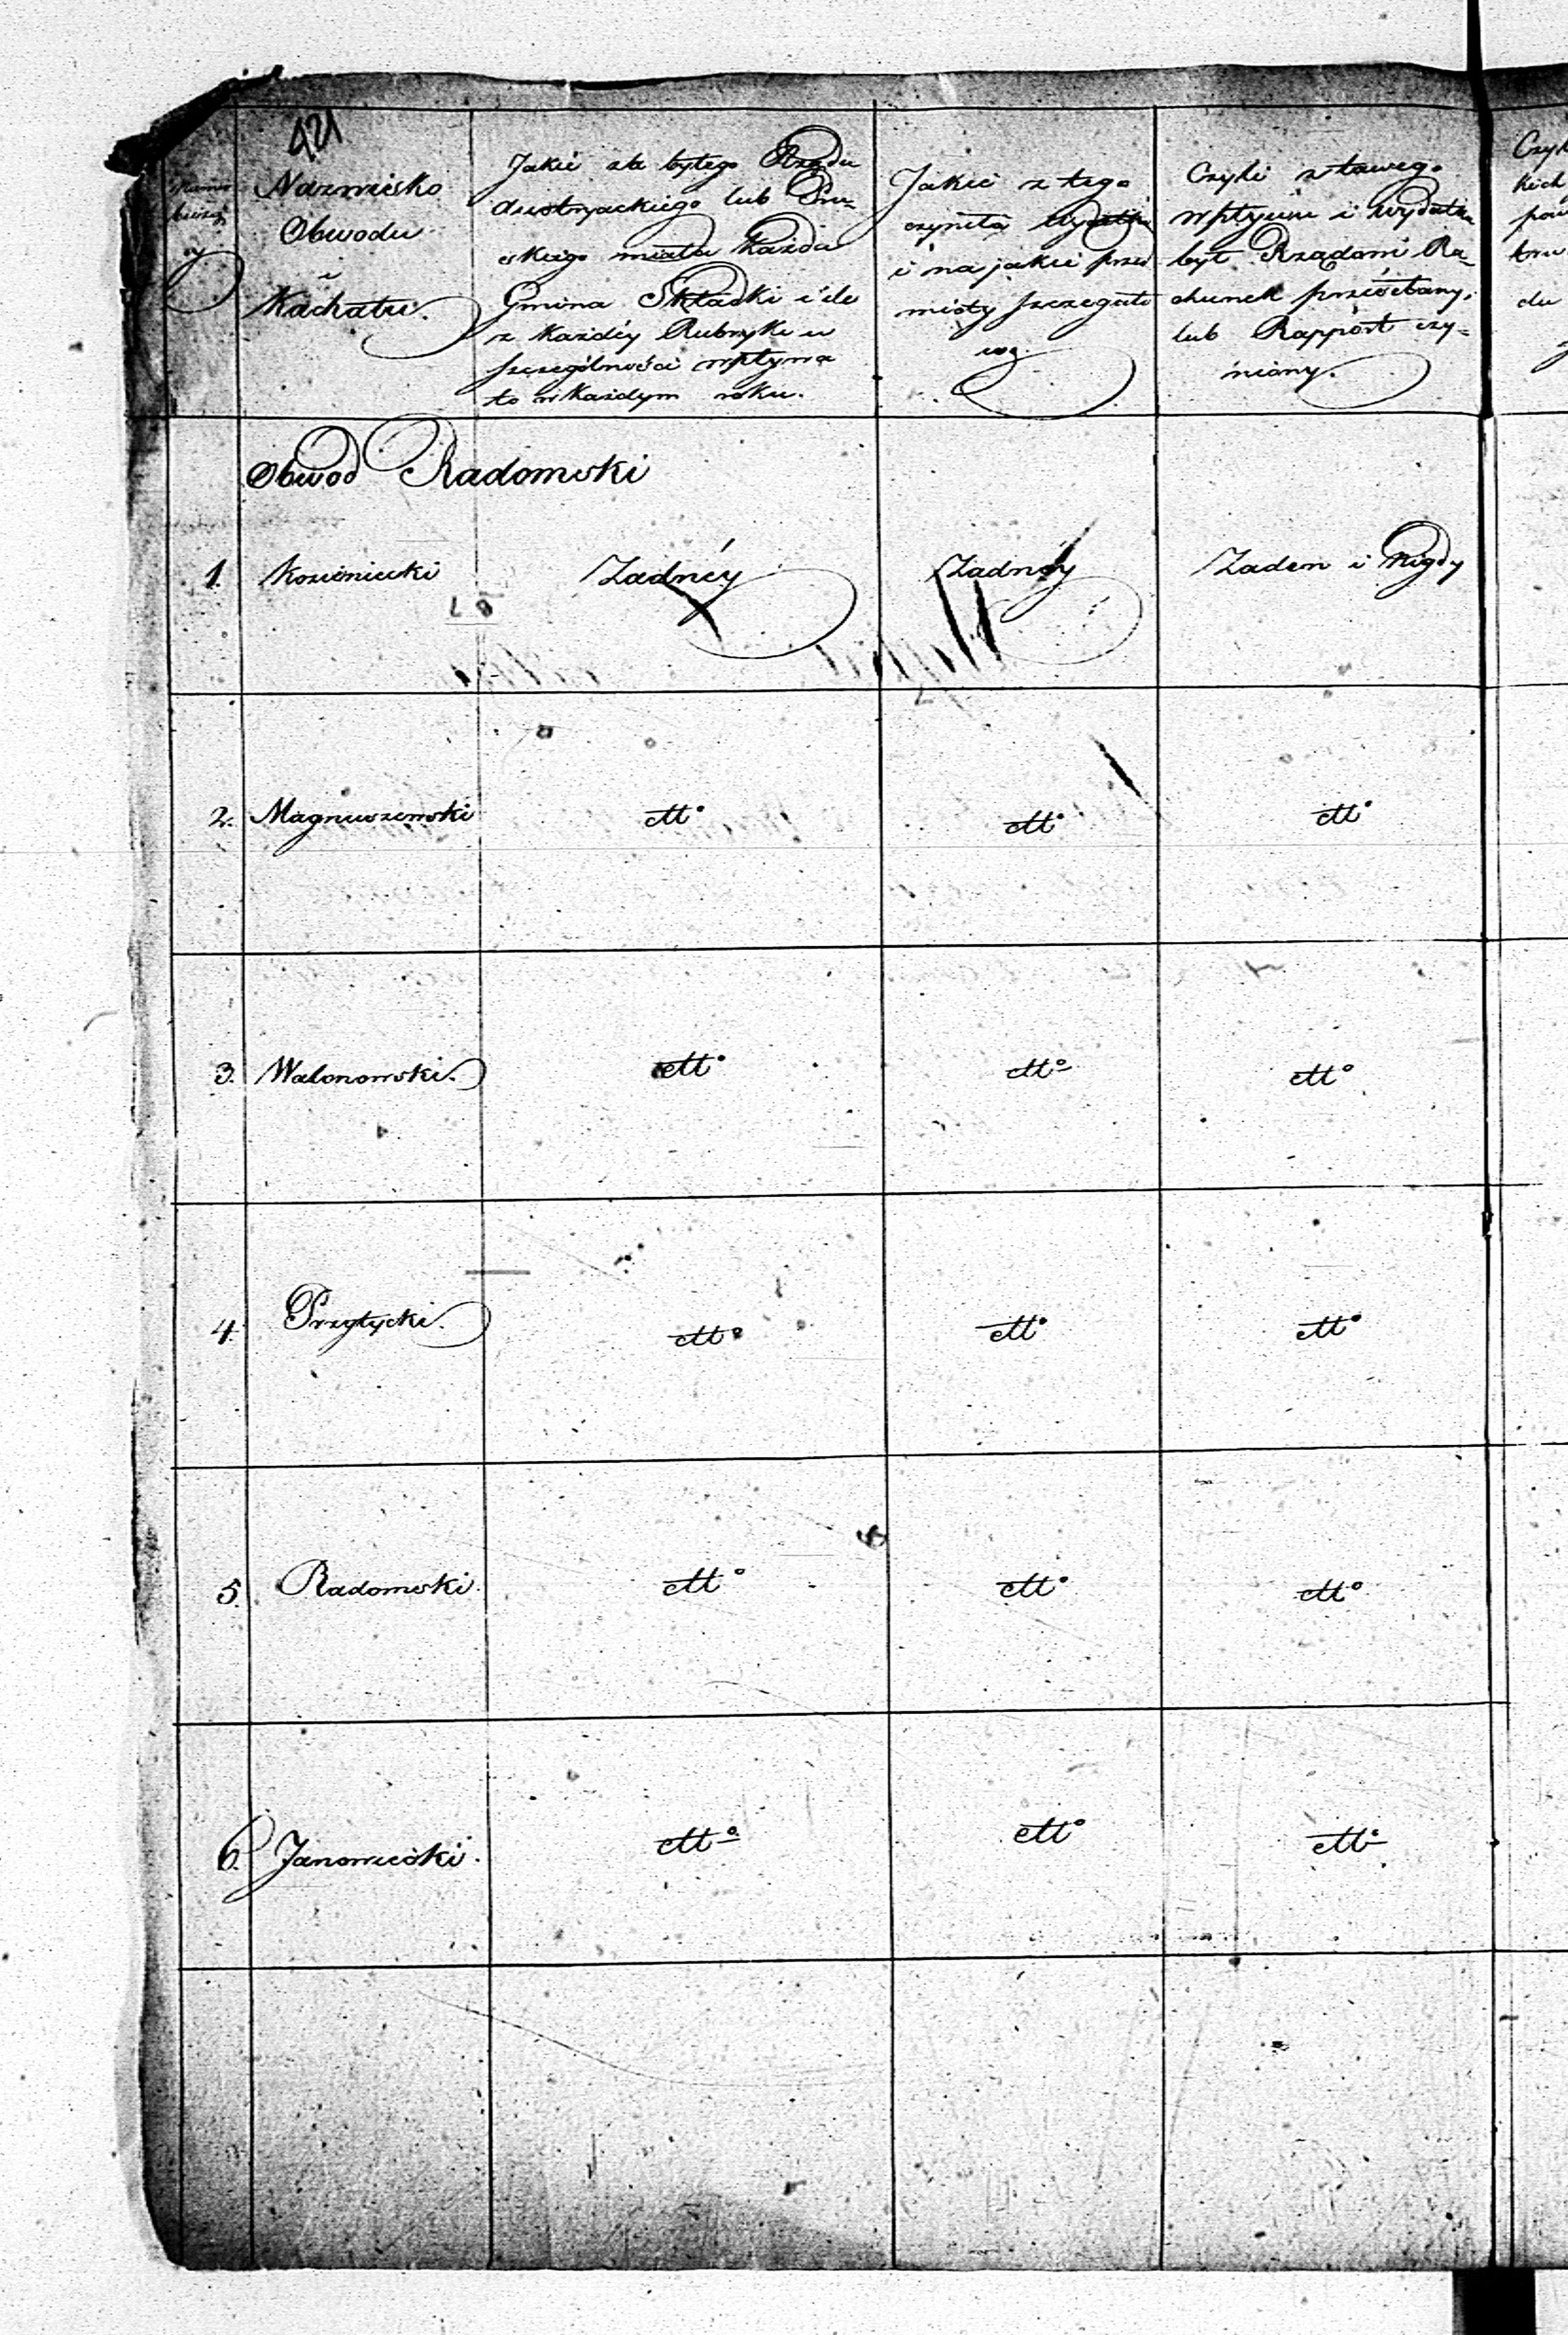 421
Numer
bieżący
Nazwisko
Obwodu
i
Kachału.
Jakié za byłego Rządu
Austryackiego lub Pru=
skiego miała Każda
Gmina Składki i ile
z każdéy Rubryki w
szczególności wpływa
to w Każdym roku.
Jakié z tego
czyniła Wydatki
i na jakié przed
mioty szczegóło
wo.
Czyli z tawego
wpływu i wydatku
był Rządowi Ra=
chunek przésłany,
lub Rapport czy=
niony.
Obwod Radomski
1. Kozieniecki Żadnéy Żadnéy Żaden i Nigdy
2. Magnuszewski dtt° dtt° dtt°
3. Walonowski. dtt° dtt° dtt°
4. Przytycki. dtt° dtt° dtt°
5. Radomski. dtt° dtt° dtt°
6. Janowiecki. dtt° dtt° dtt°